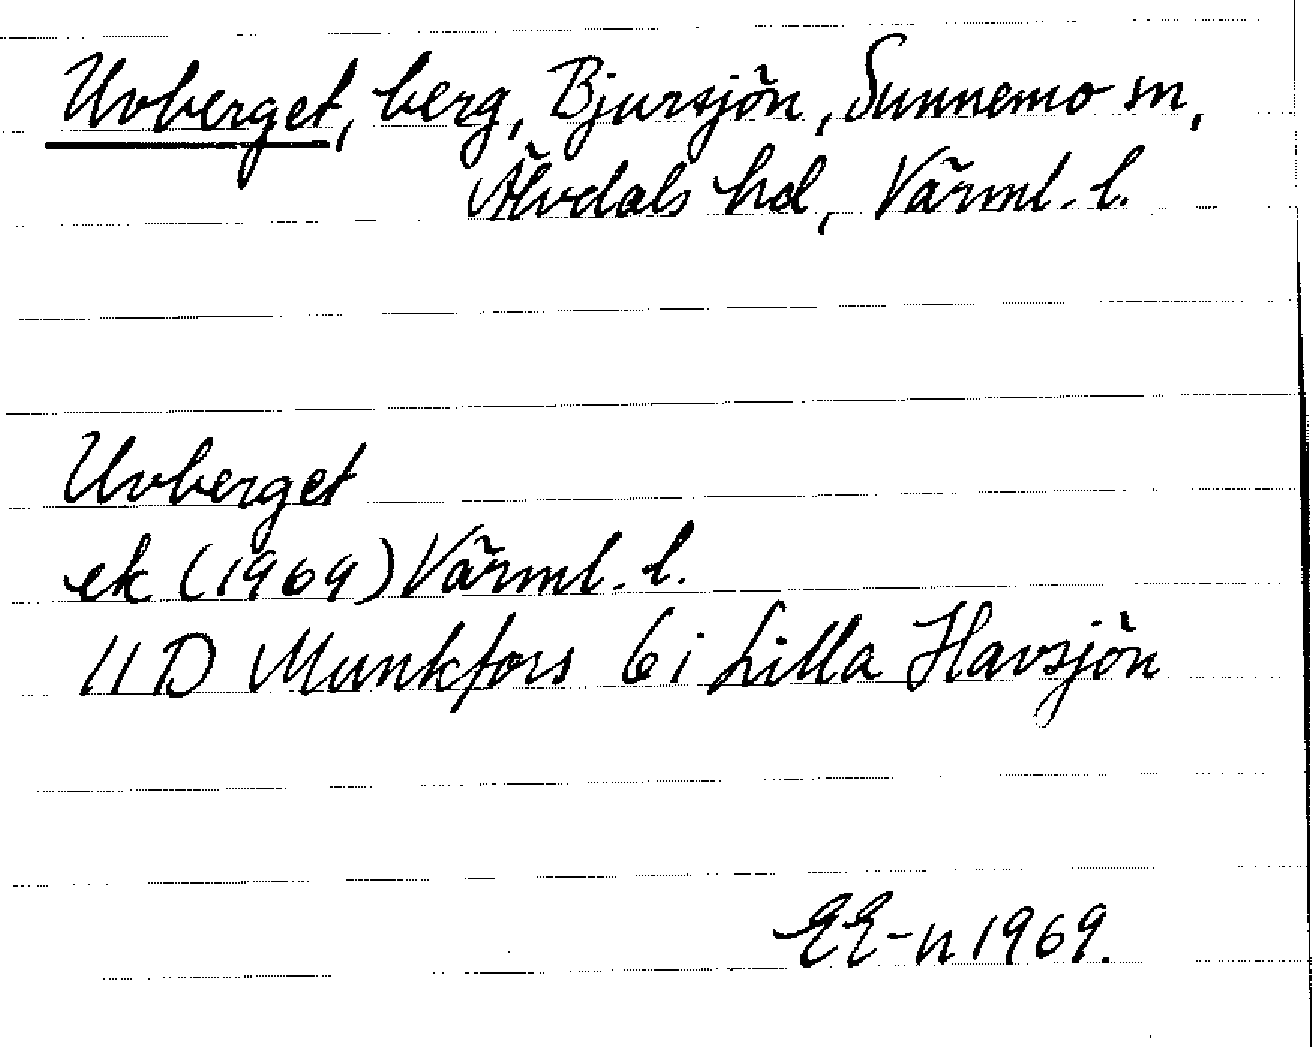 Uvberget, berg, Bjursjön, Sunnemo sn,
Älvdals hd, Värml. l.
Uvberget
ek (1969) Värml. l.
11 D Munkfors 6 i Lilla Havsjön
EE-n 1969.